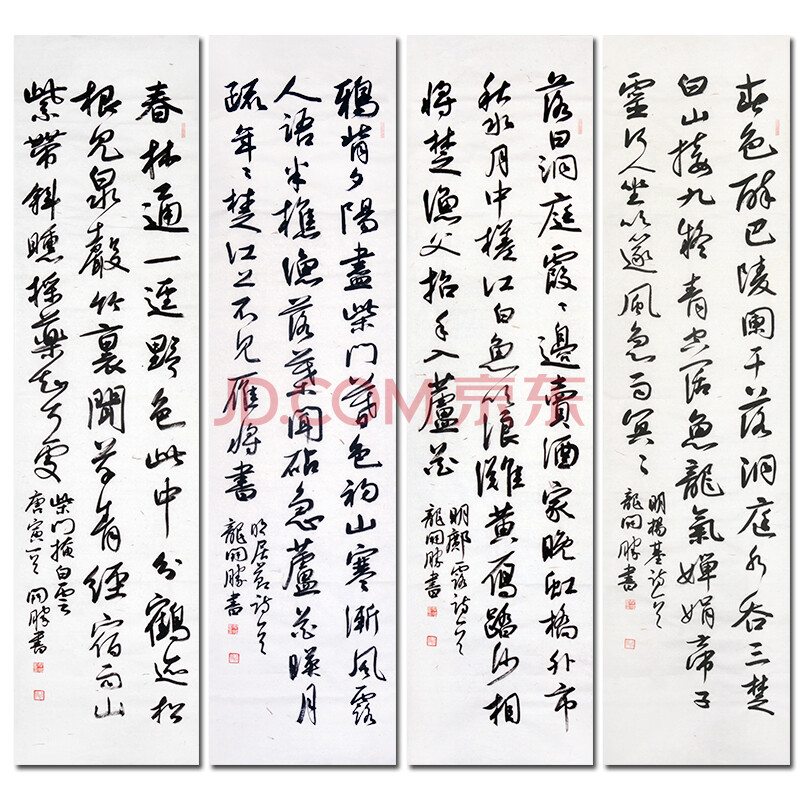 春色醉巴陵闌干落洞庭水吞三楚
白山接九疑青空闊魚龍氣嬋娟帝子
靈何人吹篴風急雨冥〻
明楊基詩一首
龍開勝書
落日洞庭霞〻邊賣酒家晚虹橋外市
秋水月中槎江白魚吹浪灘黃雁踏沙相
將楚漁父招手入蘆花
明鄺露詩一首
龍開勝書
鴉背夕陽盡柴門暮色初山寒漸風露
人語半樵漁落葉聞砧急蘆花暎月
疏年〻楚江上不見雁將書
明居節詩一首
龍開勝書
春林通一逕野色此中分鶴跡松
根見泉聲竹裏聞草青經宿雨山
紫帶斜曛採藥知何處
柴門掩白雲
唐寅一首 開勝書
JD.COM京东